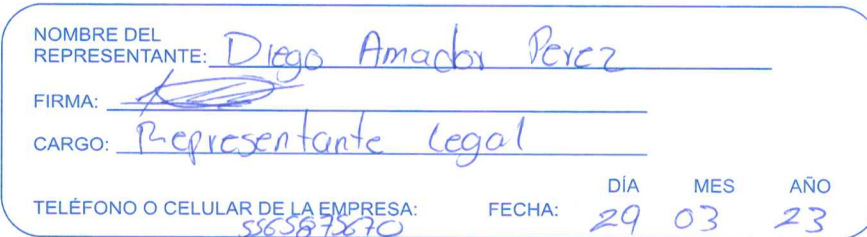 NOMBRE DEL
REPRESENTANTE: Diego Amador Perez
FIRMA:
CARGO: Representante legal
DÍA MES AÑO
TELÉFONO O CELULAR DE LA EMPRESA: 5565875670 FECHA: 29 03 23